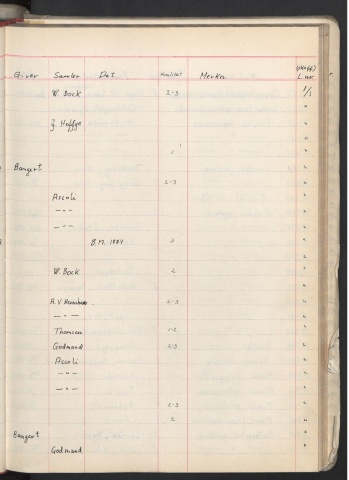 Giver Samler Dat. Kvalitet Merkn. L.nr.
W. Bock 2-3 1/1
} Heffge "
"
1 "
Bangert "
2-3 "
Ascoli "
—"— "
—"— "
B.M. 1884 "
W. Bock 2 "
2-3 "
—"— "
Thomsen 1-2 "
Godmand 2-3 "
Ascoli "
—"— "
—"— "
2-3 "
2 "
Bangert "
Godmand